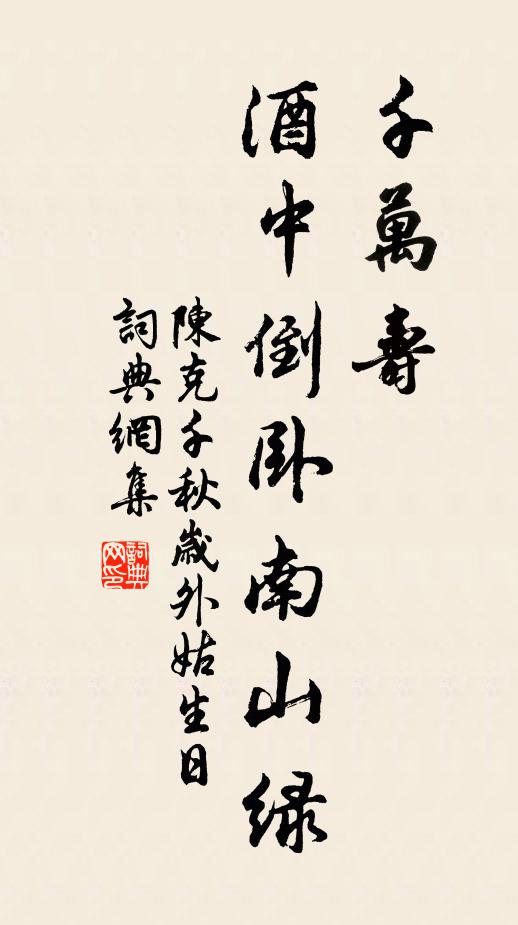 千萬壽
酒中倒卧南山綠
陳克千秋歲外姑生日
詞典網集
詞典网印